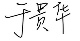 于贵华